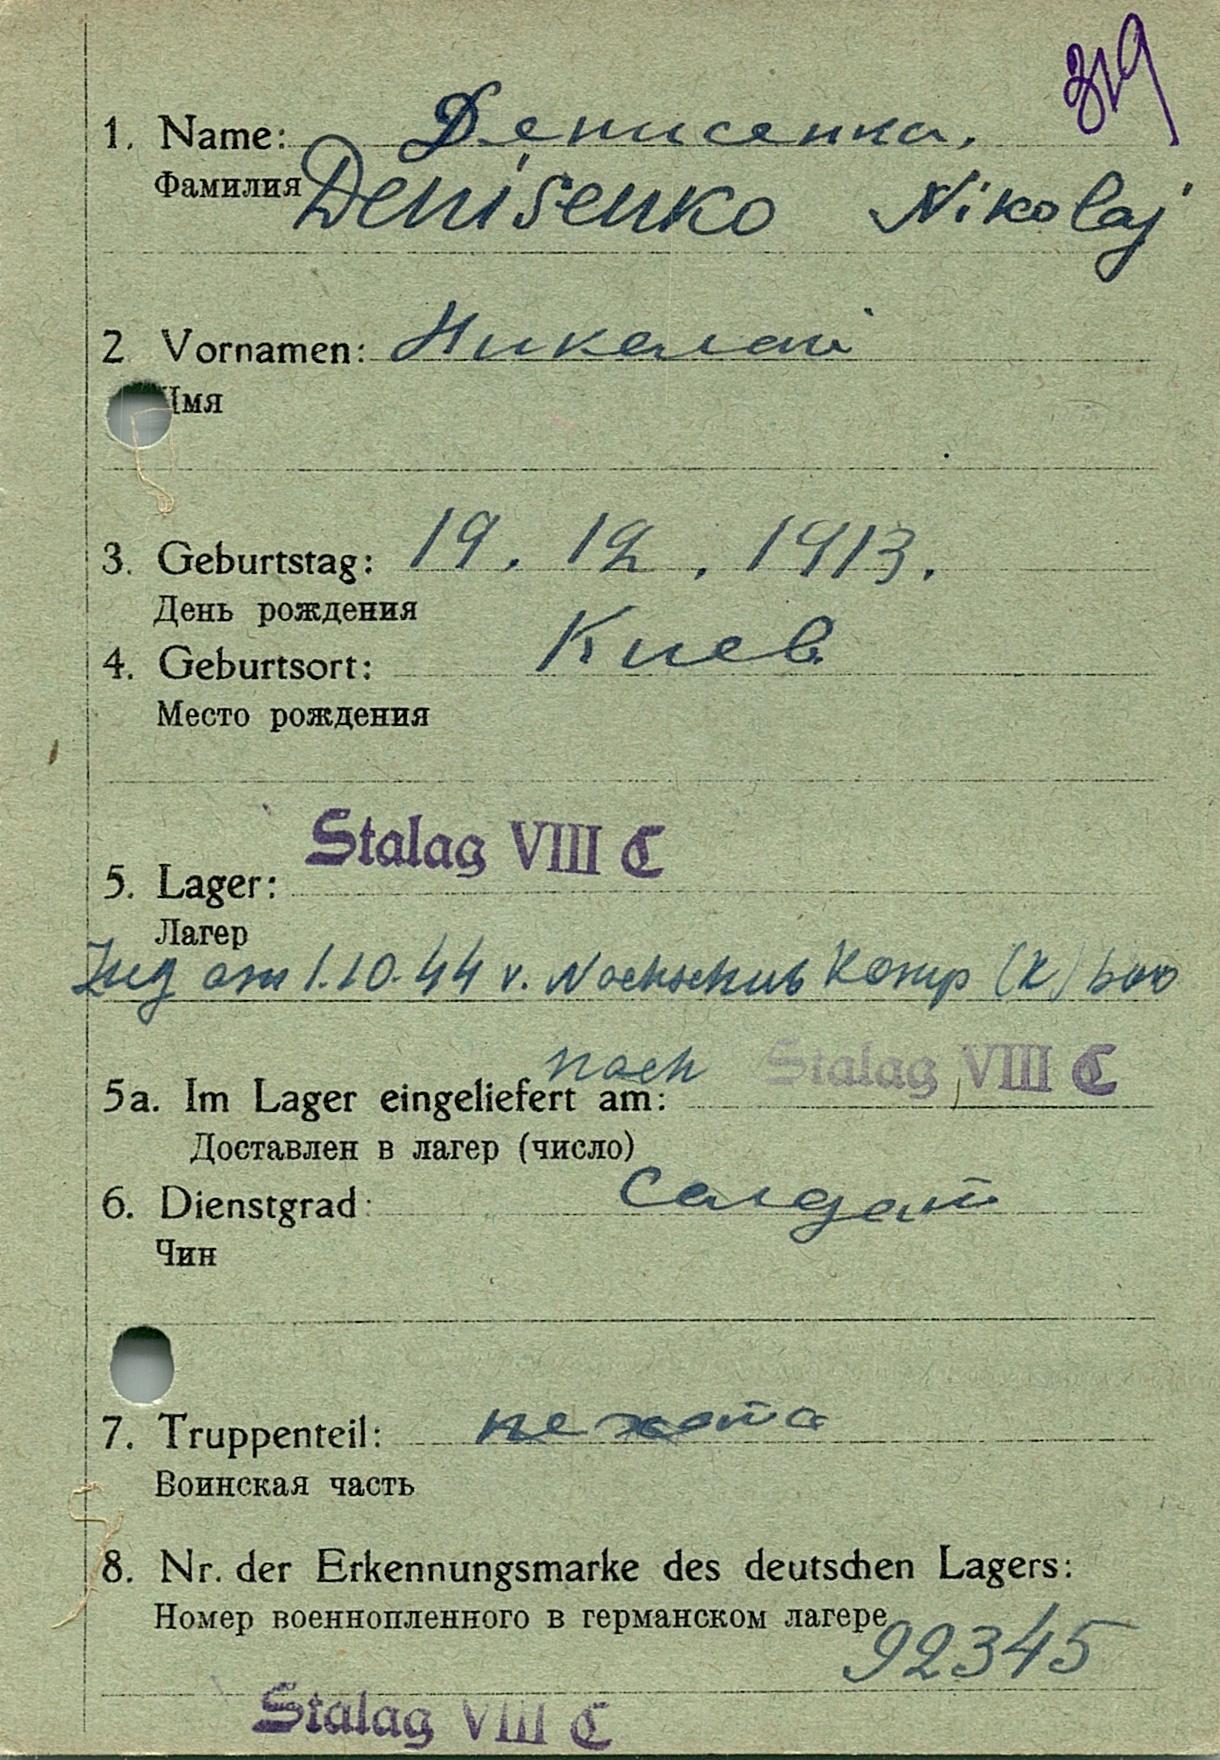 319
1. Name: Денисенка.
Фамилия Denisenko Nikolaj
2 Vornamen: Никалай
Имя
3. Geburtstag: 19. 12. 1913.
День рождения
4. Geburtsort: Киев
Место рождения
Stalag VIII C
5. Lager:
Лагер
Zug am 1.10.44 v. Nachschub Komp (K) 600
nach Stalag VIII C
5a. Im Lager eingeliefert am:
Доставлен в лагер (число)
6. Dienstgrad: Салдат
Чин
7. Truppenteil: пехота
Воинская часть
8. Nr. der Erkennungsmarke des deutschen Lagers:
Номер военнопленного в германском лагере
92345
Stalag VIII C